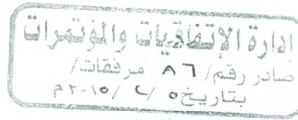 إدارة الإتفاقيات والمؤتمرات
صادر رقم/ ٨٦ مرفقات/
بتاريخ ٥ / ٢ / ٢٠١٥م